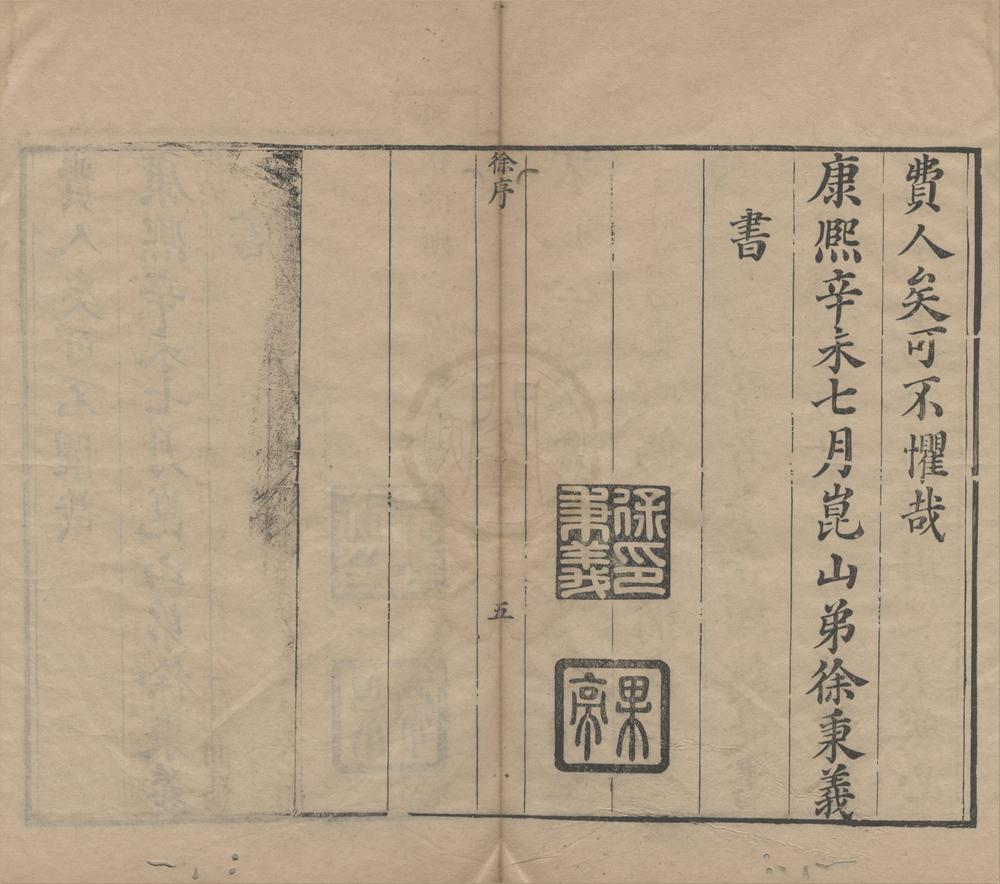 費人矣可不懼哉
康熙辛未七月崑山弟徐秉義
書
徐印秉義
果亭
徐序
五